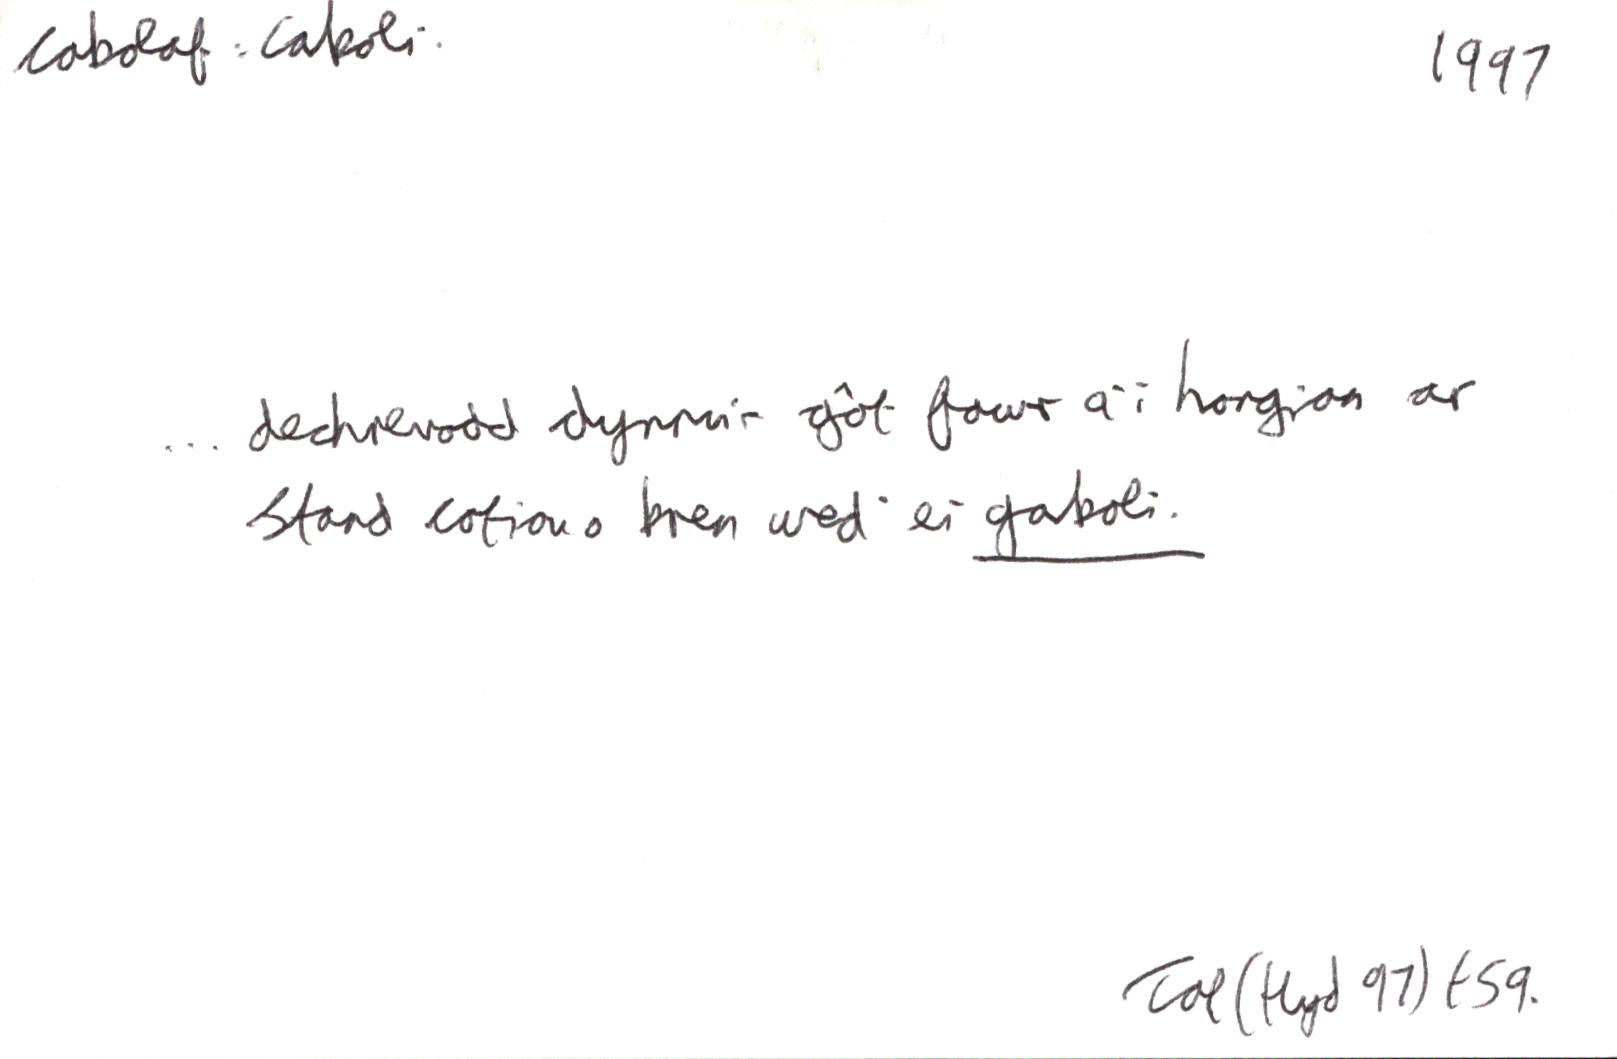 cabolaf : caboli. 1997
... dechreuodd dynnu'r gôt fawr a'i hongian ar
stand cotiau o bren wedi ei gaboli.
Tal (Hyd 97) t59.